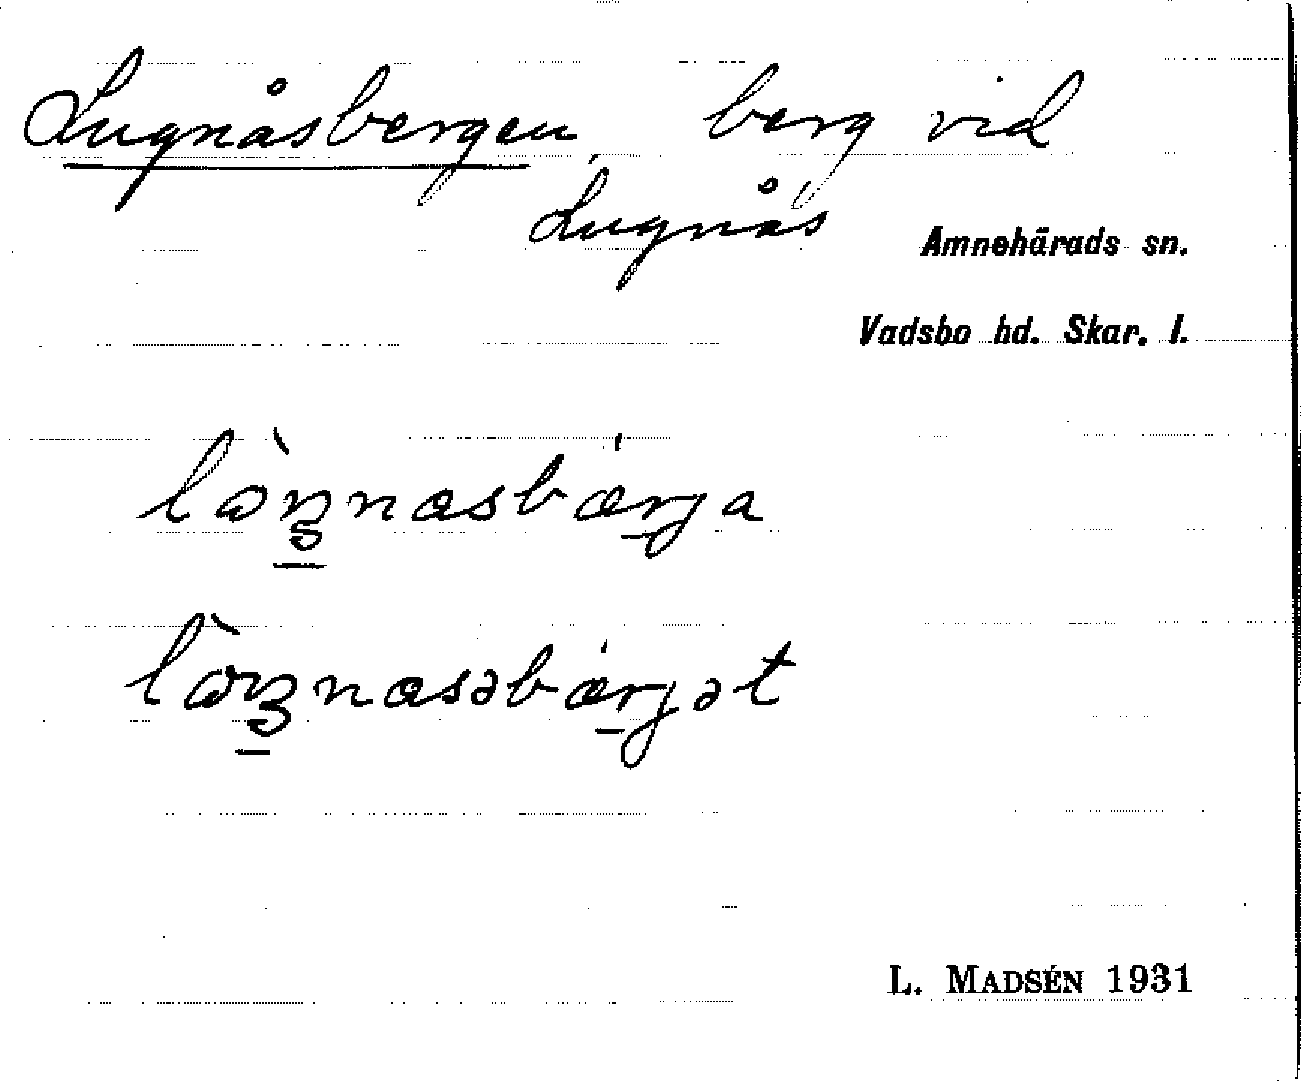 Lugnåsbergen, berg vid
Lugnås
Amnehärads sn.
Vadsbo hd. Skar. l.
L. MADSÉN 1931